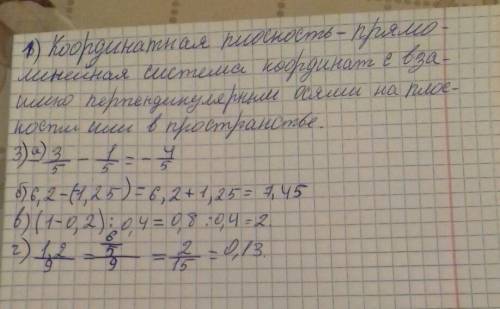 1) Координатная плоскость - прямо-
линейная система координат с вза-
имно перпендикулярным осями на плос-
кости или в пространстве.
3) а) -3/5 - 1/5 = - 4/5
б) 6,2-(-1,25) = 6,2+1,25 = 7,45
в) (1-0,2) : 0,4 = 0,8 : 0,4 = 2.
г) 1,2/9 = 6/5/9 = 2/15 = 0,13.